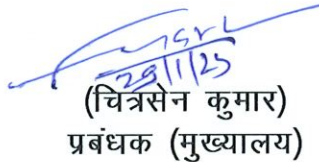 28/1/25
(चित्रसेन कुमार)
प्रबंधक (मुख्यालय)